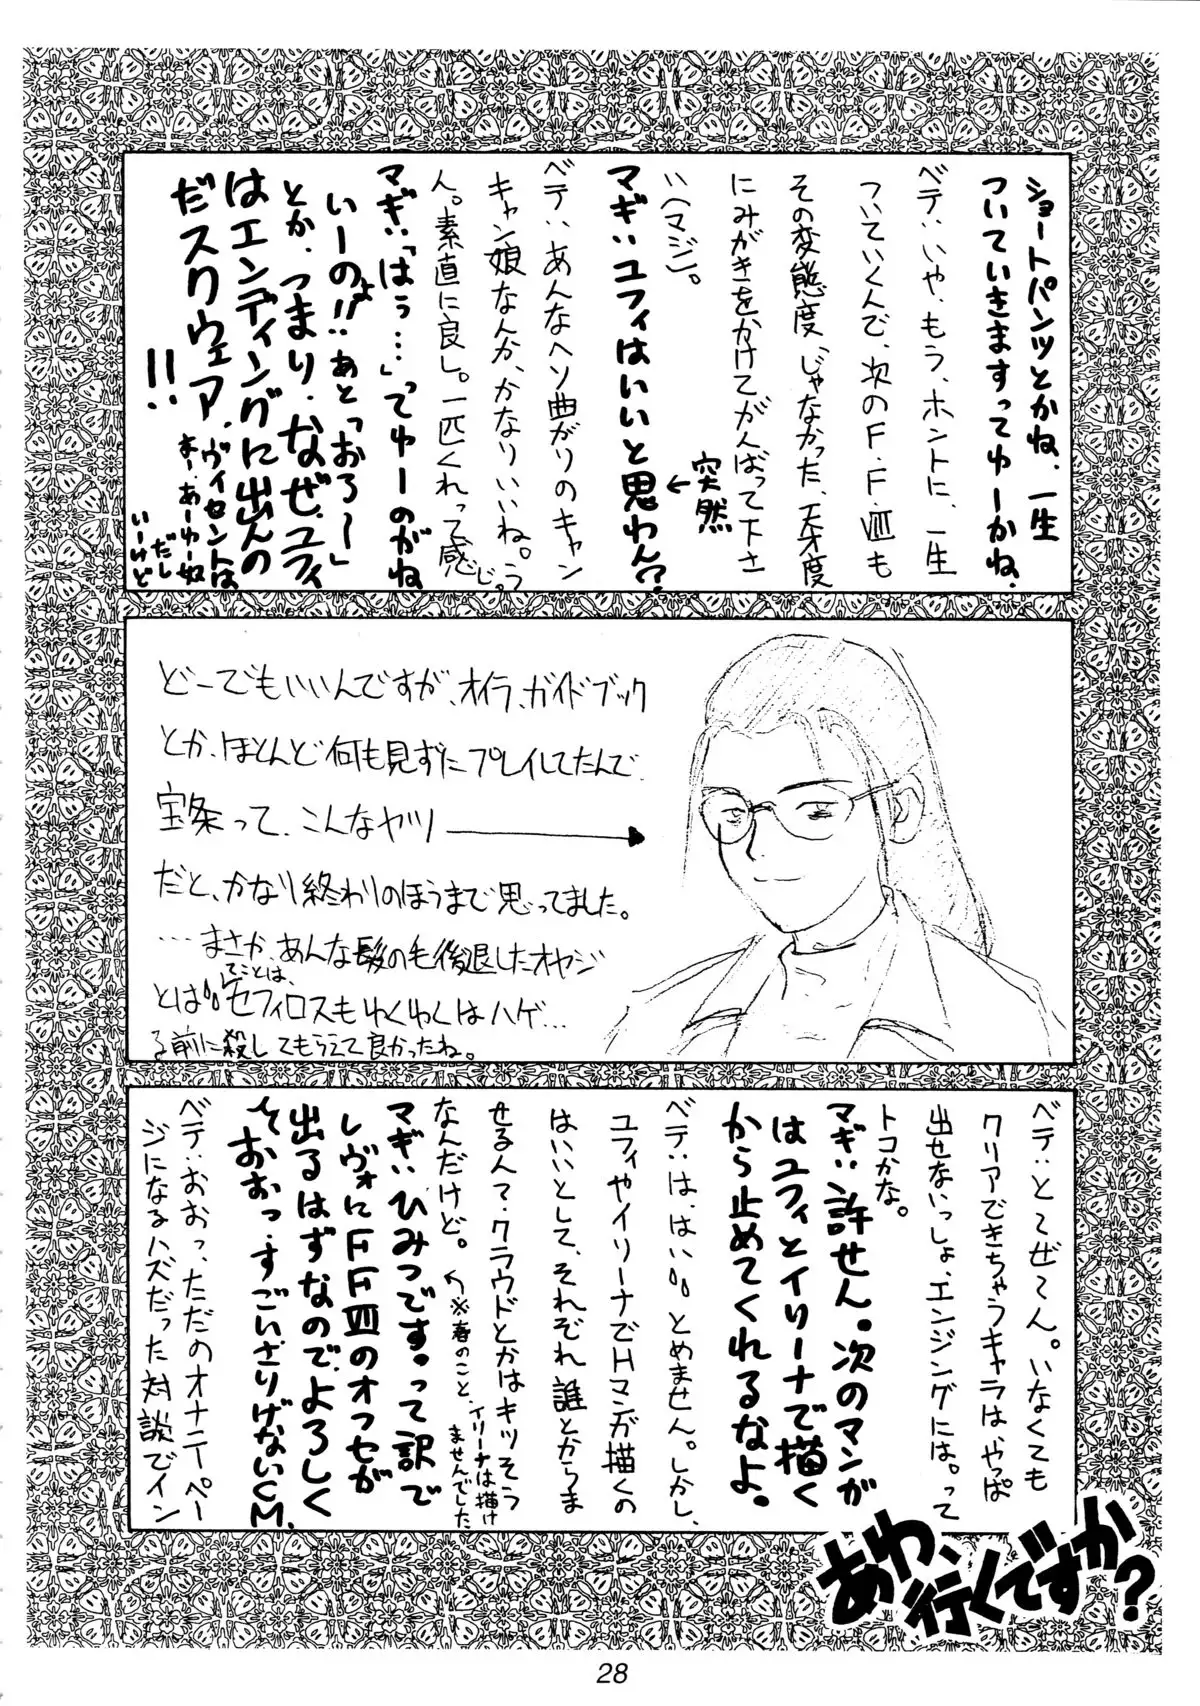 ショートパンツとかね、一生
ついていきますってゆーかね。
ベテ：いや、もう、ホントに、一生
ついていくんで、次のF.F.Ⅷも
その変態度、じゃなかった、天才度
にみがきをかけてがんばって下さ
い(マジ)。
マギ：ユフィはいいと思わん？
←突然
ベテ：あんなヘソ曲がりのキャン
キャン娘なんか、かなりいいね。う
ん。素直に良し。一匹くれって感じ。
マギ：「はぅ…」ってゅーのがね
いーのよ!!あと「おろ〜」
とか、つまり、なぜ、ユフィ
はエンディングに出んの
だスクウェア!!
ヴィセントは
まー、あーゆー奴
だし
いーけど
どーでもいいんですが、オイラ、ガイドブック
とか、ほとんど何も見ずにプレイしてたんで、
宝条って、こんなヤツ
だと、かなり終わりのほうまで思ってました。
…まさか、あんな髪の毛後退したオヤジ
とは。てことは、セフィロスもゆくゆくはハゲ…
る前に殺してもらえて良かったね。
ベテ：とーぜーん。いなくても
クリアできちゃうキャラは、やっぱ
出せないっしょ、エンジングには。って
トコかな。
マギ：許せん。次のマンガ
はユフィとイリーナで描く
から止めてくれるなよ。
ベテ：は、はい。とめません。しかし、
ユフィやイリーナでHマンガ描くの
はいいとして、それぞれ誰とからま
せるんで？クラウドとかはキツそう
なんだけど。
※春のこと、イリーナは描け
ませんでした
マギ：ひみつです。って訳で
レヴォにFFⅦのオフセが
出るはずなので、よろしく
ておおっ、すごいさりげないCM。
ベテ：おおっ、ただのオナニーペー
ジになるハズだった対談でイン
あわ、行くですか？
28